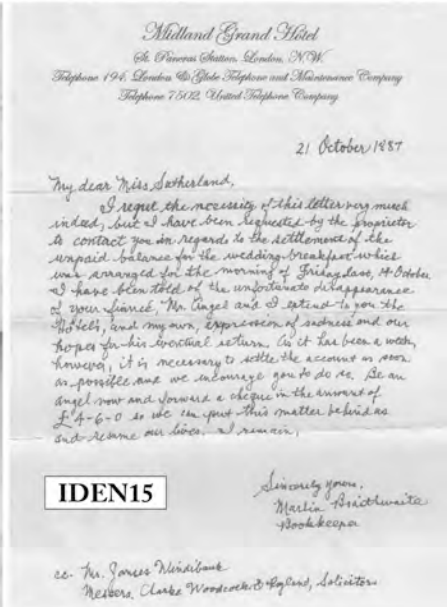 Midland Grand Hotel
St. Pancras Station, London, N.W.
Telephone 194, London & Globe Telephone and Maintenance Company
Telephone 7502, United Telephone Company
21 October 1887
My dear Miss Sutherland,
I regret the necessity of this letter very much
indeed, but I have been requested by the proprietor
to contact you in regards to the settlement of the
unpaid balance for the wedding breakfast which
was arranged for the morning of Friday last, 14 October.
I have been told of the unfortunate disappearance
of your fianceé, Mr. Angel and I extend to you the
Hotel's, and my own, expression of sadness and our
hopes for his eventual return. As it has been a week,
however, it is necessary to settle the account as soon
as possible and we encourage you to do so. Be an
angel now and forward a cheque in the amount of
£4-6-0 so we can put this matter behind us
and resume our lives. I remain,
Sincerely yours,
Martin Braithwaite
Bookkeeper
IDEN15
cc: Mr. James Windibank
Messers. Clarke Woodcock & Ryland, Solicitors